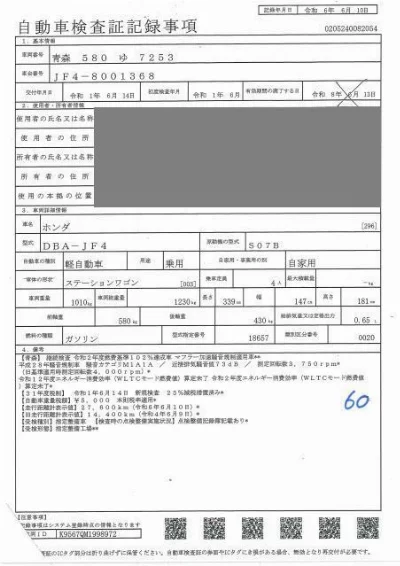 記録年月日 令和 6年 6月 10日
自動車検査証記録事項
0205240082054
1. 基本情報
車両番号 青森 580 ゆ 7253
車台番号 JF4-8001368
交付年月日 令和 1年 6月 14日 初度検査年月 令和 1年 6月 有効期間の満了する日 令和 8年 6月 13日
2. 使用者・所有者情報
使用者の氏名又は名称
使用者の住所
所有者の氏名又は名称
所有者の住所
使用の本拠の位置
3. 車両詳細情報
車名 ホンダ [296]
型式 DBA-JF4 原動機の型式 S07B
自動車の種別 軽自動車 用途 乗用 自家用・事業用の別 自家用
車体の形状 ステーションワゴン [003] 乗車定員 4人 最大積載量 -kg
車両重量 1010kg 車両総重量 1230kg 長さ 339cm 幅 147cm 高さ 181cm
前軸重 580kg 後軸重 430kg 総排気量又は定格出力 0.65 L
燃料の種類 ガソリン 型式指定番号 18657 類別区分番号 0020
4. 備考
[青森] 継続検査 令和2年度燃費基準102%達成車 マフラー加速騒音規制適用車**
平成28年騒音規制車 騒音カテゴリM1A1A / 近接排気騒音値73dB / 測定回転数3,750rpm*
(旧基準適用時測定回転数4,000rpm)*
令和12年度エネルギー消費効率(WLTCモード燃費値)算定未了 令和2年度エネルギー消費効率(WLTCモード燃費値)算定未了*
[31年度税制] 令和1年6月14日 新規検査 25%減税措置済み*
[自動車重量税額] ¥5,000 本則税率適用*
[走行距離計表示値] 27,600km(令和6年6月10日)*
[旧走行距離計表示値] 16,400km(令和4年6月9日)*
[受検種別] 指定整備車 [検査時の点検整備実施状況] 点検整備記録簿記載あり*
[受検形態] 指定整備工場**
60
[注意事項]
記録事項はシステム登録時点の情報となります
X9567QM1998972
証のICタグ部分は折り曲げずに保管ください。自動車検査証の券面やICタグに き損がある場合、無効となり再交付が必要です。